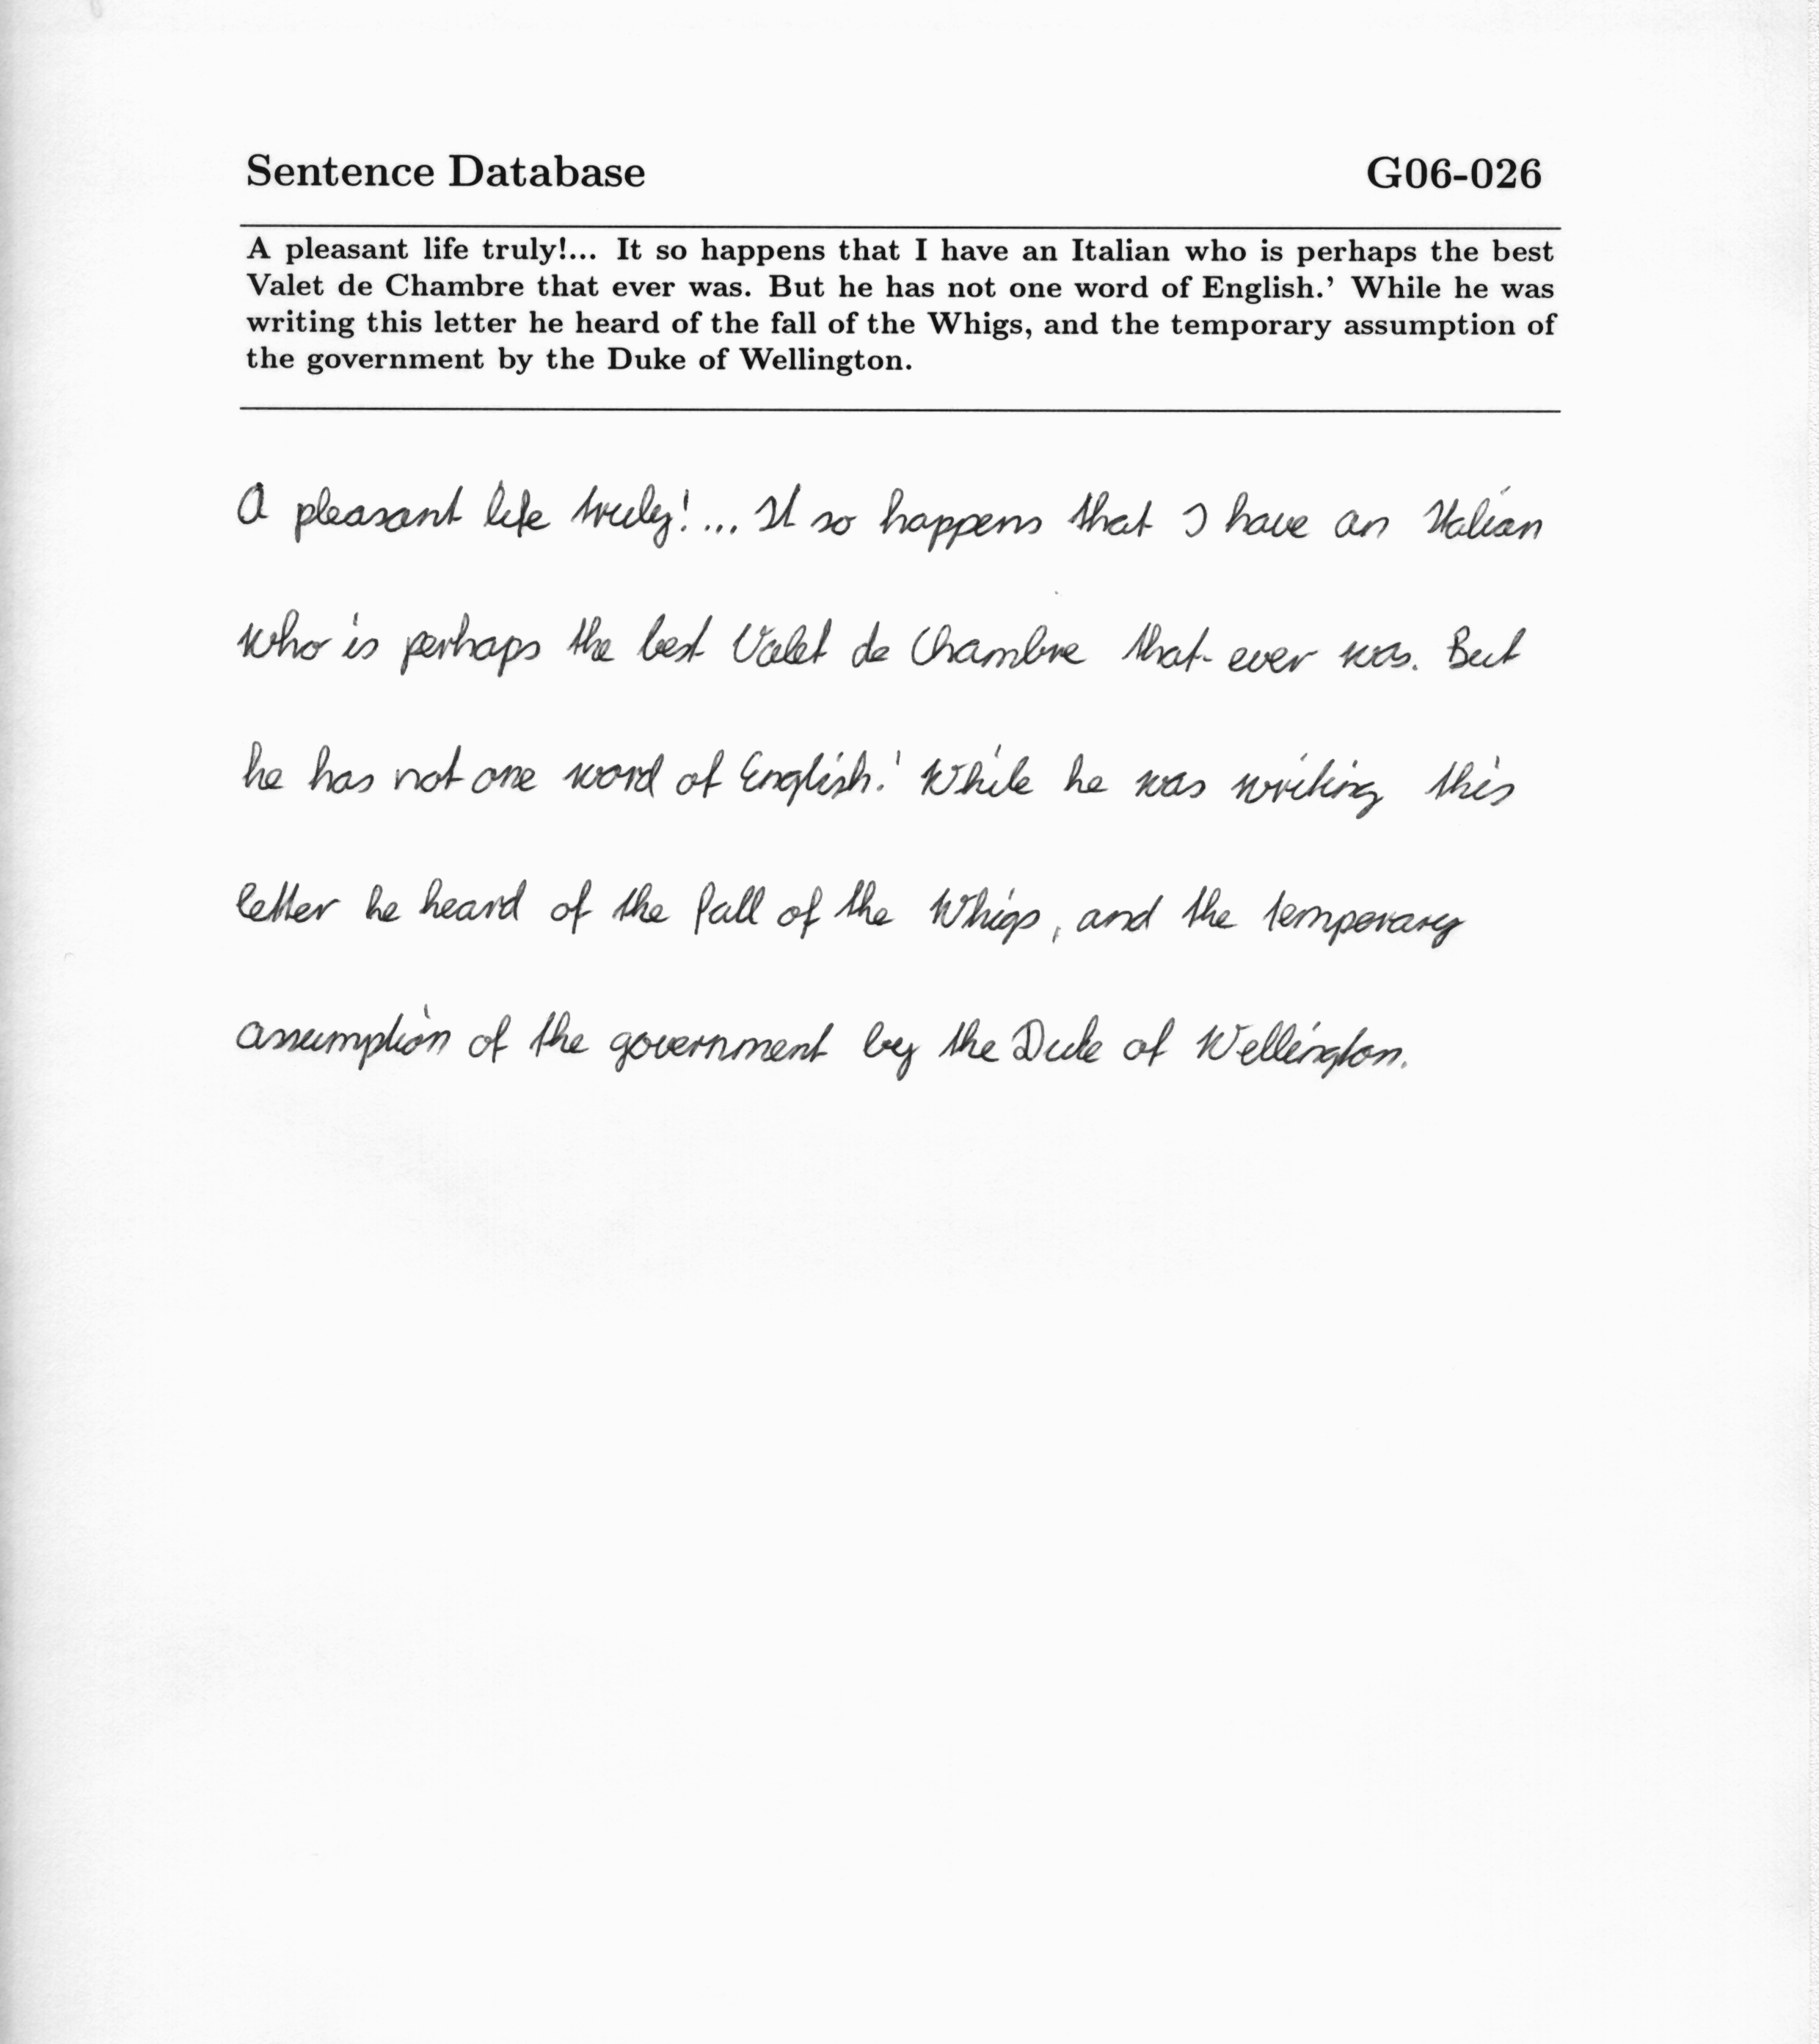 Sentence Database G06-026
A pleasant life truly!... It so happens that I have an Italian who is perhaps the best
Valet de Chambre that ever was. But he has not one word of English.’ While he was
writing this letter he heard of the fall of the Whigs, and the temporary assumption of
the government by the Duke of Wellington.
A pleasant life truly!... It so happens that I have an Italian
who is perhaps the best Valet de Chambre that ever was. But
he has not one word of English.' While he was writing this
letter he heard of the fall of the Whigs, and the temporary
assumption of the government by the Duke of Wellington.